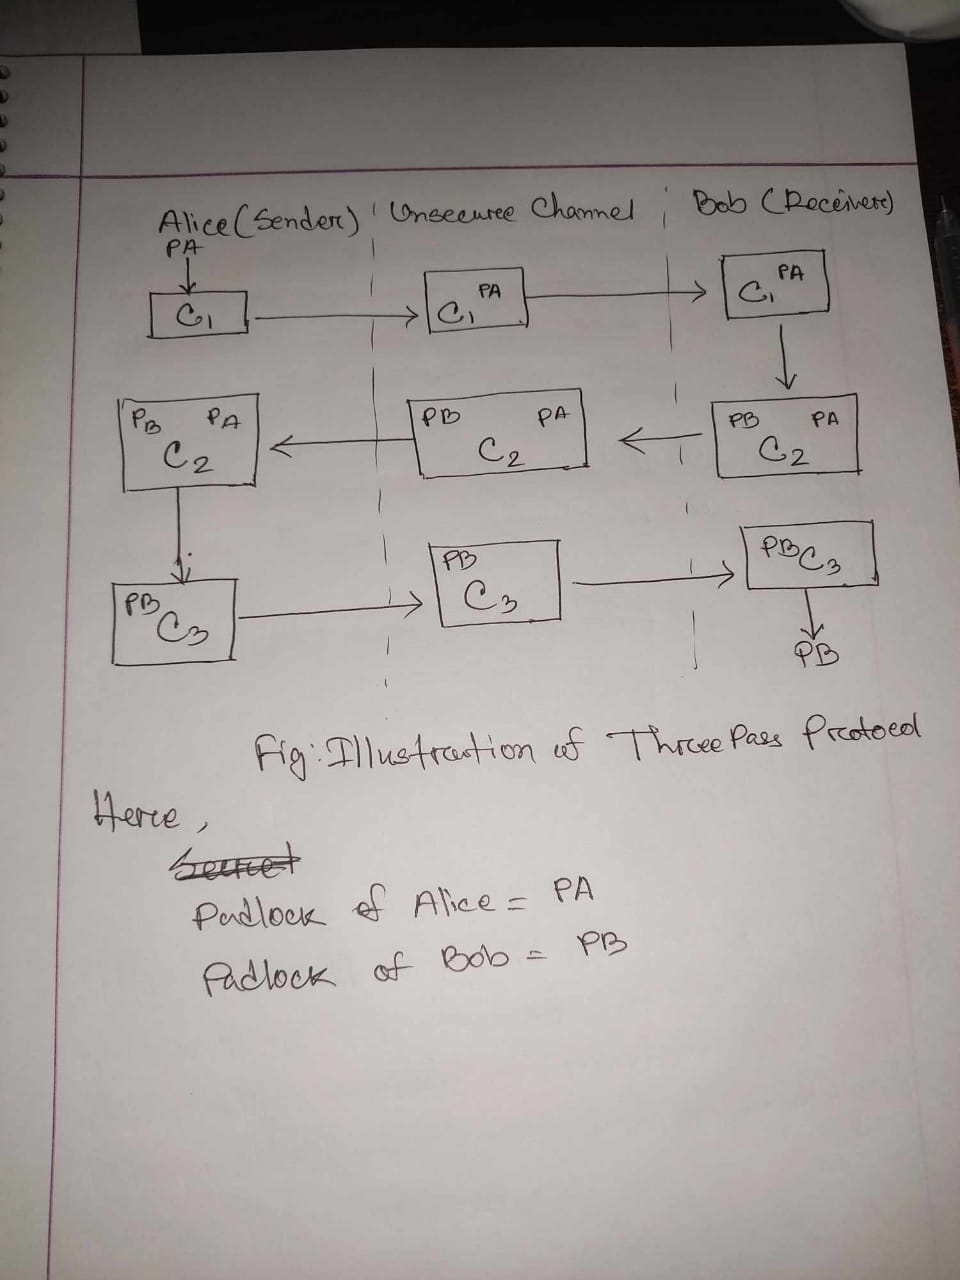 Alice (Sender) Unsecuree Channel Bob (Receivere)
PA
C1 C1 PA C1 PA
PB PA C2 PB PA C2 PB PA C2
PB C3 PB C3 PB C3
PB
Fig: Illustration of Three Pass Protocol
Here,
Padlock of Alice = PA
Padlock of Bob = PB